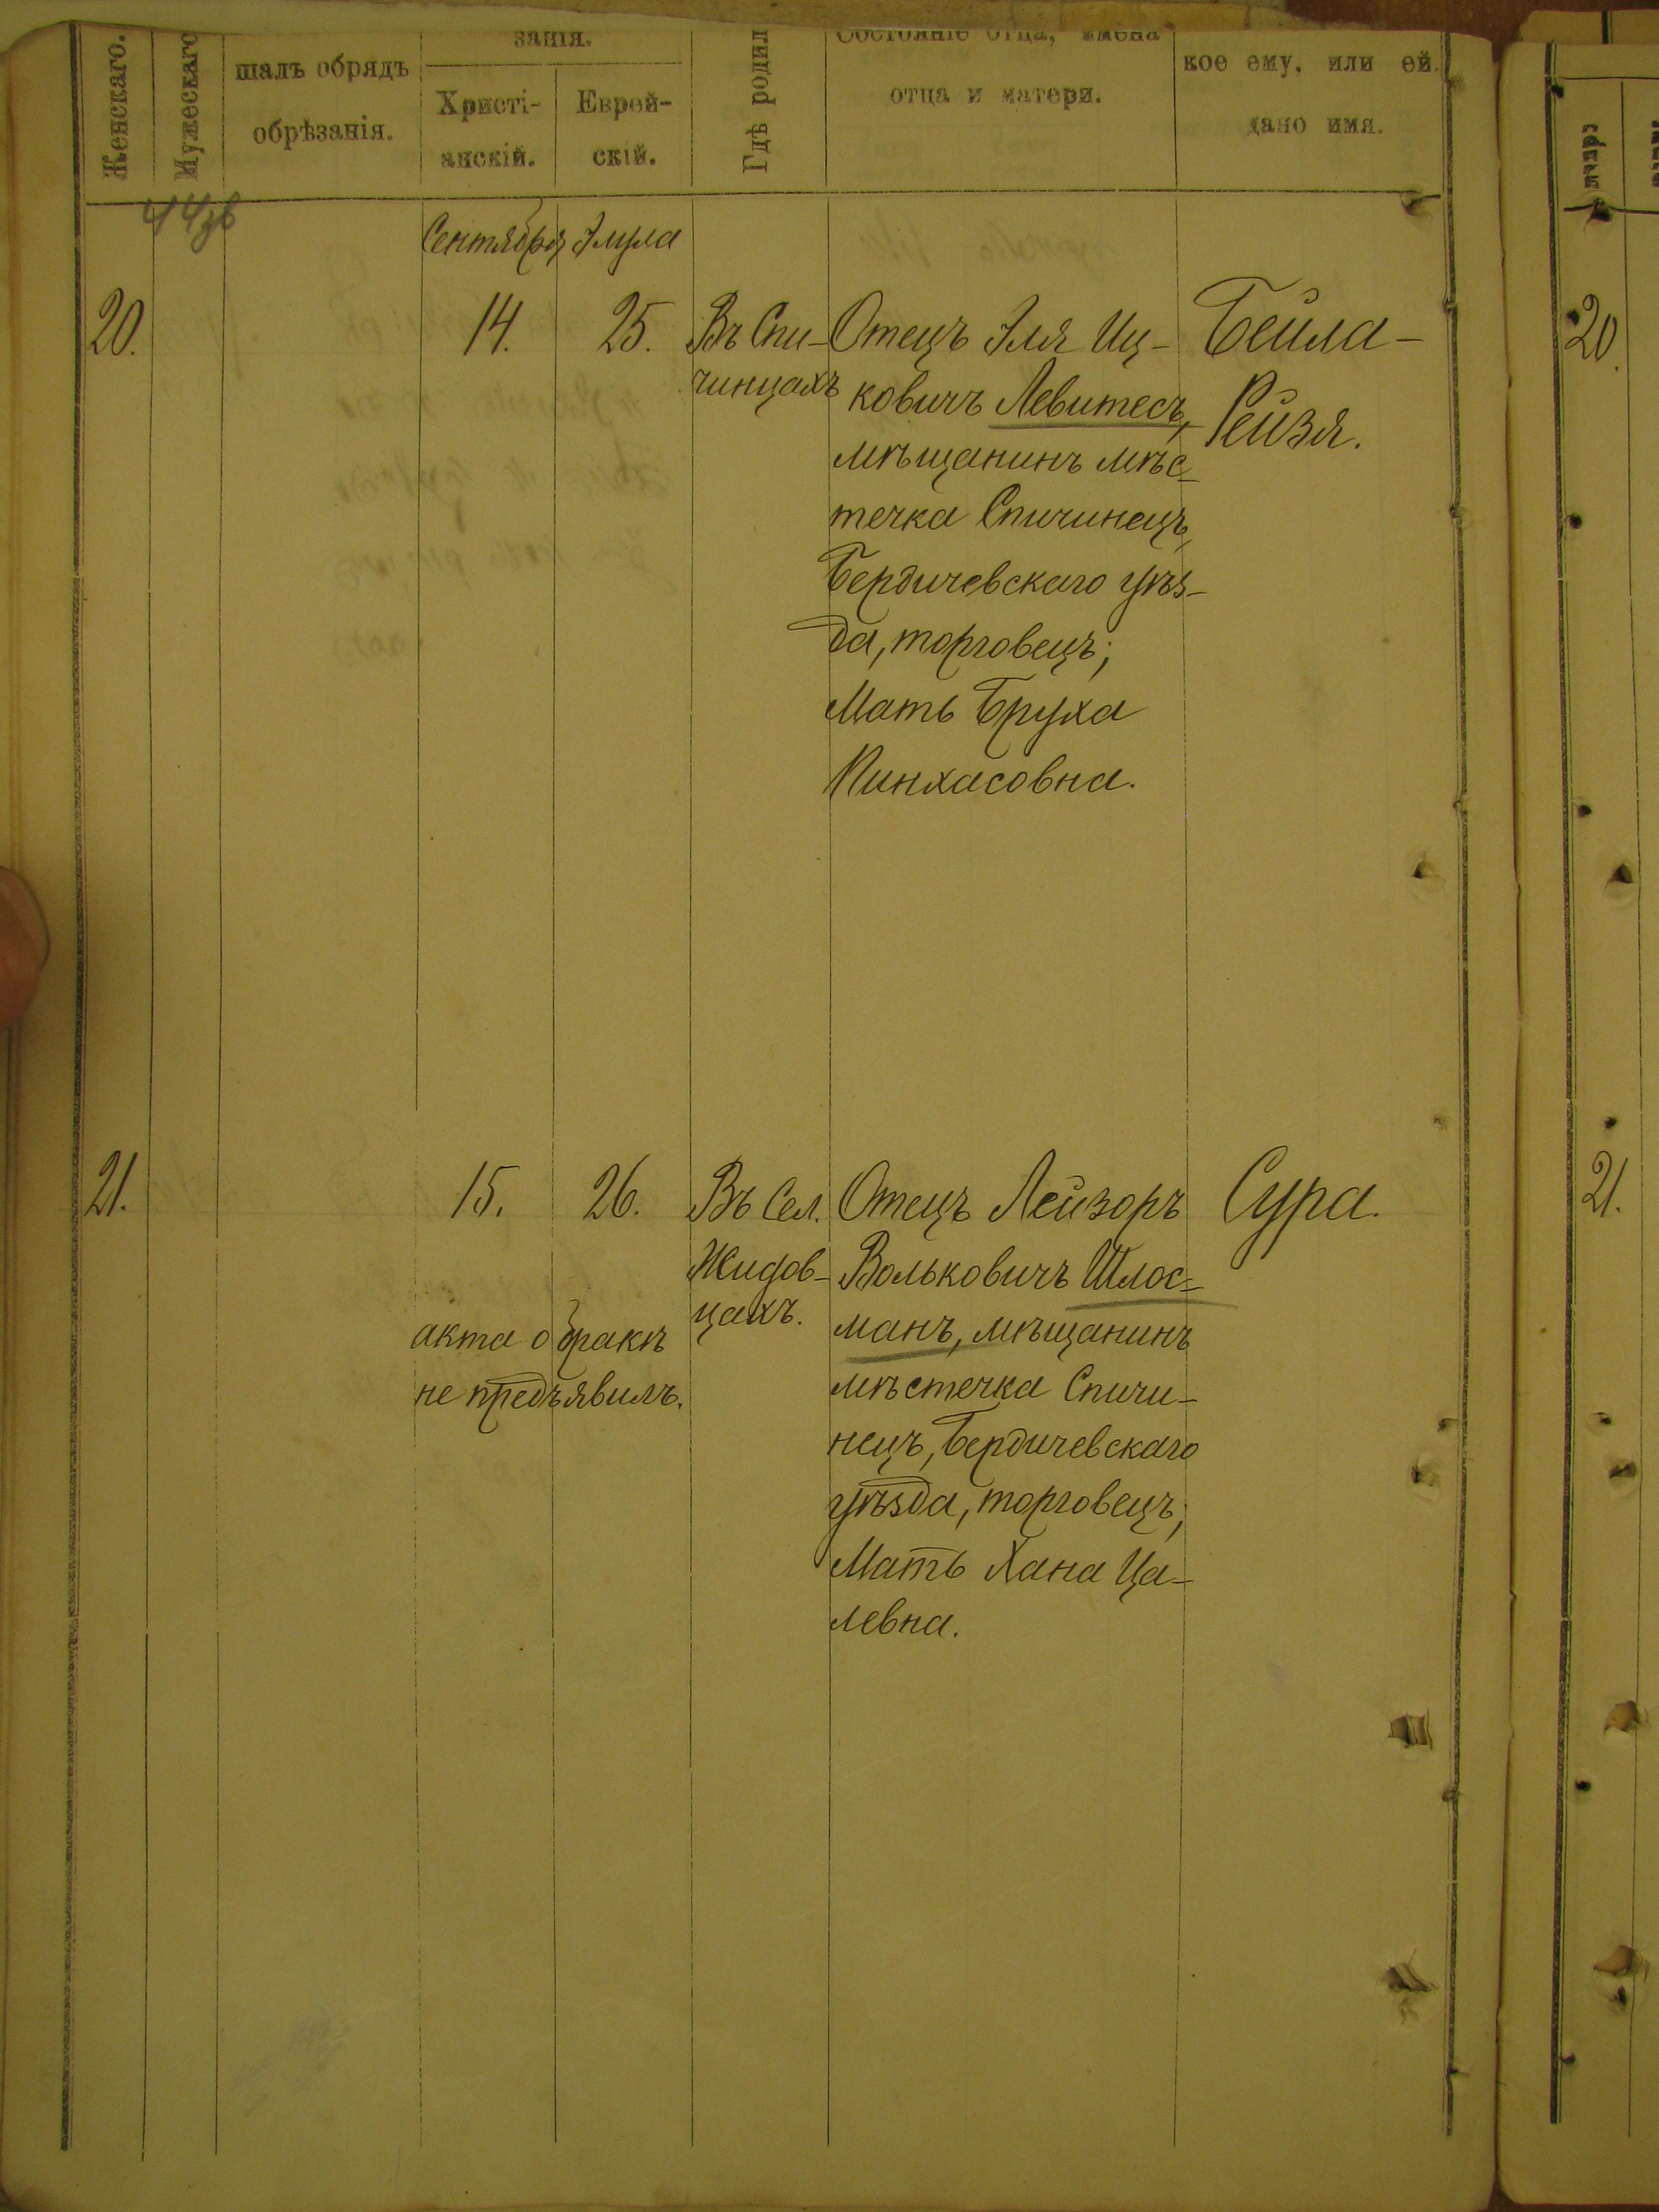 Женскаго.
Мужескаго
шалъ обрядъ
обрѣзанія.
занія.
Христі-
анскій.
Еврей-
скій.
Гдѣ родил
Состояніе отца, имена
отца и матери.
кое ему, или ей
дано имя.
44зв
Сентября Элула
20.
14.
25.
Въ Спи-
чинцахъ
Отецъ Эля Иц-
ковичъ Левитесъ,
мѣщанинъ мѣс-
течка Спичинецъ,
Бердичевскаго уѣз-
да, торговецъ;
Мать Бруха
Пинхасовна.
Бейла-
Рейзя.
20
21.
15.
26.
акта о бракѣ
не предъявилъ.
Въ Сел.
Жидов-
цахъ.
Отецъ Лейзоръ
Вольковичъ Шлос-
манъ, мѣщанинъ
мѣстечка Спичи-
нецъ, Бердичевскаго
уѣзда, торговецъ;
Мать Хана Ца-
левна.
Сура.
21.